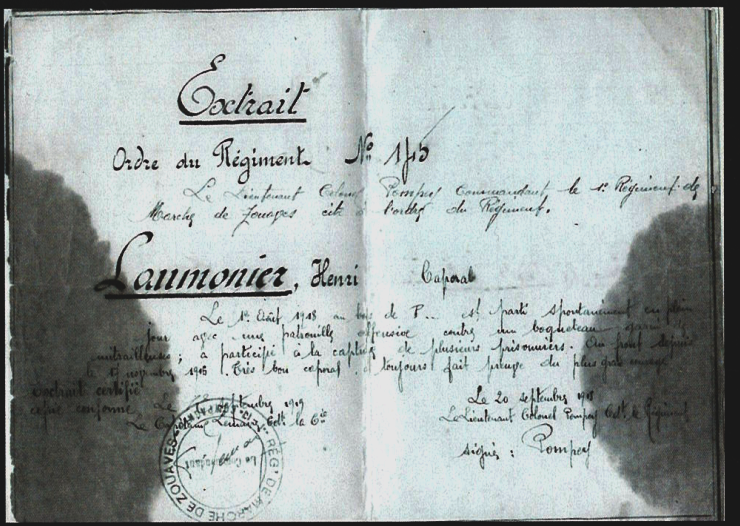 Extrait
Ordre du Régiment No 145
Le Lieutenant Colonel Pompey Commandant le 1er Régiment de
Marche de Zouaves cite à l'ordre du Régiment.
Laumonier, Henri Caporal
Le 1er Août 1918 au bois de P... est parti spontanément en plein
jour avec une patrouille offensive contre un boqueteau garni
mitrailleuses ; a participé à la capture de plusieurs prisonniers. Au front depuis
le novembre 1915. Très bon caporal a toujours fait preuve du plus grand courage
Extrait certifié
copie conforme Le septembre 1919
Le Capitaine Ct la Cie
Le 20 septembre 1918
Le Lieutenant Colonel Pompey Ct le Régiment
signé : Pompey
RÉGt DE MARCHE DE ZOUAVES
Le Commandant